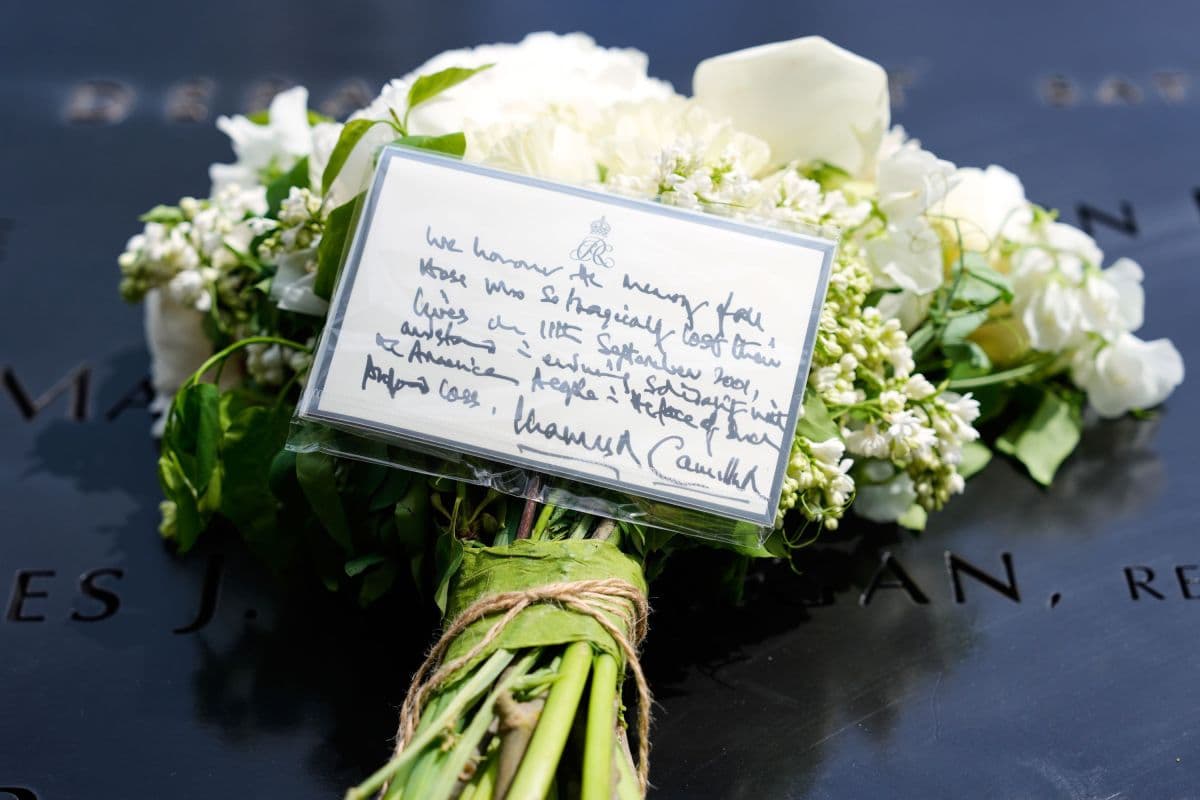 We honour the memory of all
those who so tragically lost their
lives on 11th September 2001,
and stand in enduring solidarity with
the American people in the face of such
profound loss.
Charles R Camilla R
MA
ES J.
AN, RE